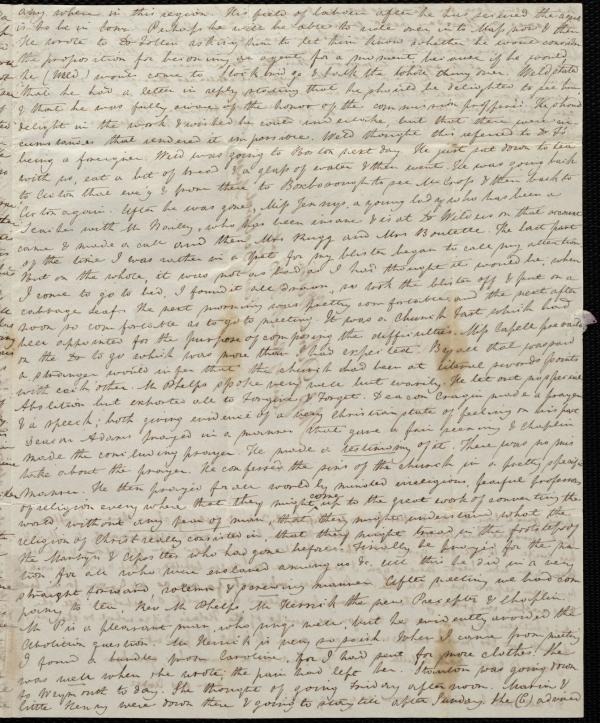 any where in this region. His field of labour after he has served the ages
is to be in Conn. Perhaps he will be able to ride over in to Mass now & then
He wrote to Dr Follen asking him to let him know whether he would consider
the proposition for becoming an agent for a moment, because if he would,
he (Weld) would come to Stockbridge & talk the whole thing over. Weld stated
that he had a letter in reply stating that he should be delighted to see him,
& that he was fully aware of the honor of the commission proffered. He should
delight in the work & wished he could undertake, but that there were cir
cumstances that rendered it impossible. Weld thought this referred to Dr F's
being a foreigner. Weld was going to Boston next day. He just sat down to tea
with us, eat a bit of bread & a glass of water & then went. He was going back
to Groton that eve'g & from there to Boxborough to see Mr Cross & then back to
Groton again. After he was gone, Miss Jennys, a young lady who has been a
Teacher with Mr , who has been insane & is at Dr Wilders on that account
came & made a call and then Mrs Rugg and Mrs Boutelle. The last part
of the time I was rather in a fret for my blister began to call my attention
But on the whole, it was not as bad as I had thought it would be, when
I come to go to bed, I found it all drawn, so took the blister off & put on a
cabbage leaf. The next morning was pretty comfortable and the next after
noon so comfortable as to go to meeting. It was a Church Fast which had
been appointed for the purpose of composing the difficulties. Miss Capell prevailed
on the Dr to go which was more than I had expected. By all that was said
a stranger would infer that the church had been at literal swords points
with each other. Mr Phelps spoke very well but warily. He let out no special
Abolition but exhorted all to Forgive & Forget. Deacon Cragin made a prayer
& a speech; both giving evidence of a very Christian state of feeling on his part
Deacon Adams prayed in a manner that gave a fair seeming & Chaplin
made the concluding prayer. He made a testimony of it. There was no mis
take about the prayer. He confessed the sins of the church in a pretty specific
manner. He then prayed for all worldly minded irreligious, fearful professors
of religion every where that they might come up to the great work of converting the
world, without any fear of man, that they might understand what the
religion of Christ really consisted in that they might tread in the footsteps of
the Martyrs & Apostles who had gone before. Finally he prayed for the na
tion for all who were enslaved among us &c. all this he did in a very
straight forward, solemn & manner After meeting we had com
pany to tea, Rev. Mr Phelps, Mr Herrick the new Preceptor & Chaplin
Mr P is a pleasant man, who sings well, but he evidently avoided the
Abolition question. Mr Herrick is very so soish. When I came from meeting
I found a bundle from Caroline, for I had sent for more clothes. She
was well when she wrote, the pain had left her. Stanton was going down
to Weymouth to day. She thought of going Friday afternoon. Maria &
little Henry were down there & going to stay till after Sunday. the (C) advised